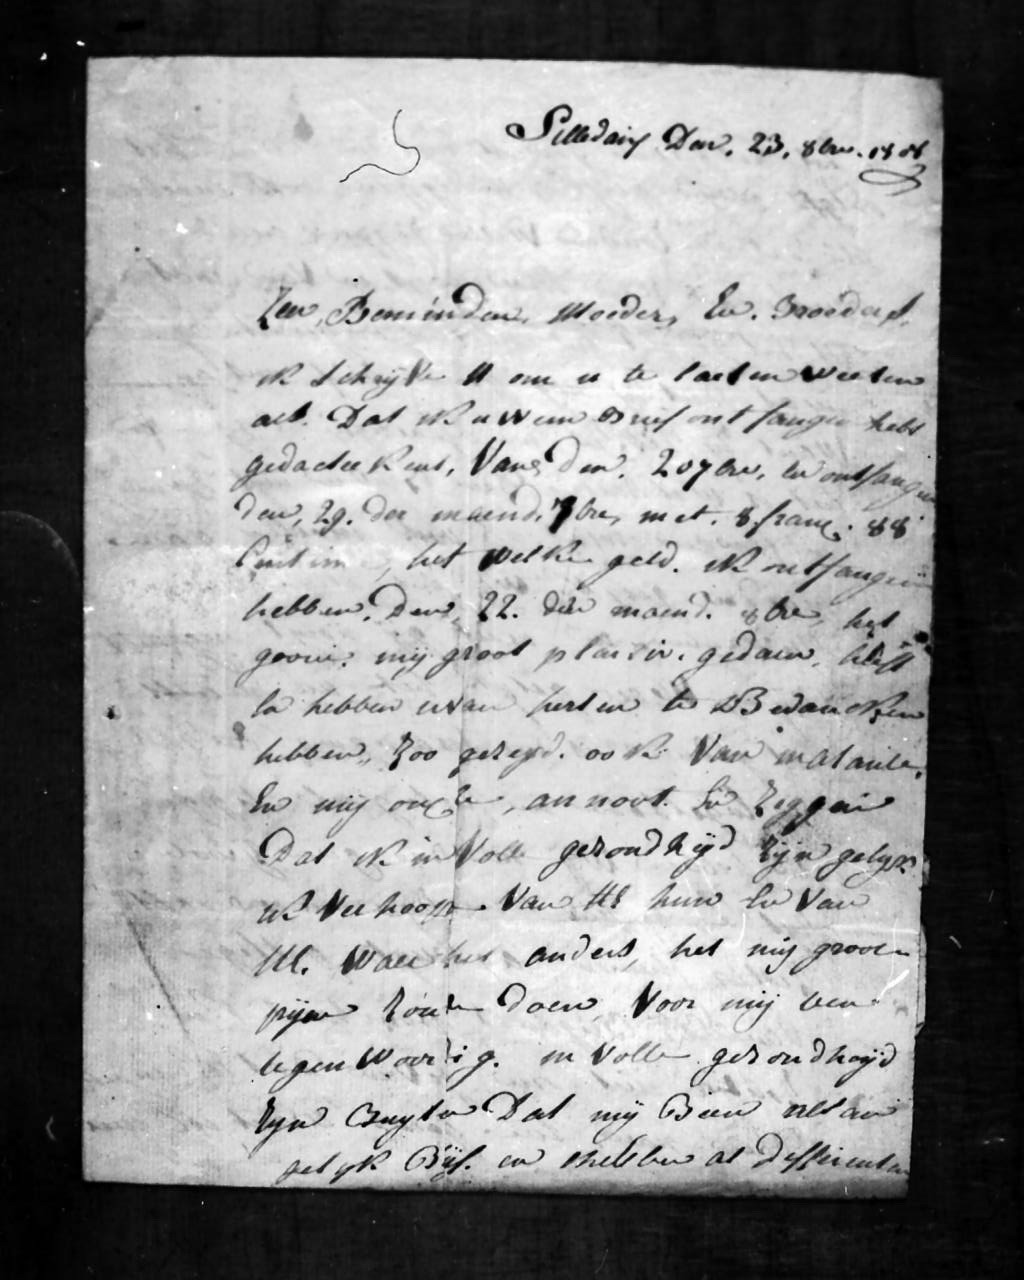 Den. 23. 8bre. 18
Zeer, Beminden, Moeder, En. Broeders,
ik schryve U om u te laeten weeten
als. Dat ik uwen Brief ontfangen hebt
gedacteekent, Van, den, 20 7bre, en ontfangen
den, 29. der maend. 7bre, met. 8 franc. 88
Centime, het welke geld. ik ontfangen
hebben, Den, 22. der maend. 8bre, het
mij groot plaisir. gedaen, heeft
hebben u van herten te Bedancken
hebben, Zoo gezeyd. ook Van
En mij En Zeggen
Dat ik in Volle gezondhyd Zyn gelyk
ik Verhoope Van Ul hun En Van
Ul. Waer het anders, het mij groote
pyne Zoude Doen, Voor mij ben
tegenwoordig. in Volle gezondhyd
Zyn Buyten Dat mij Been
gelyk Byf. en hebben at differenten